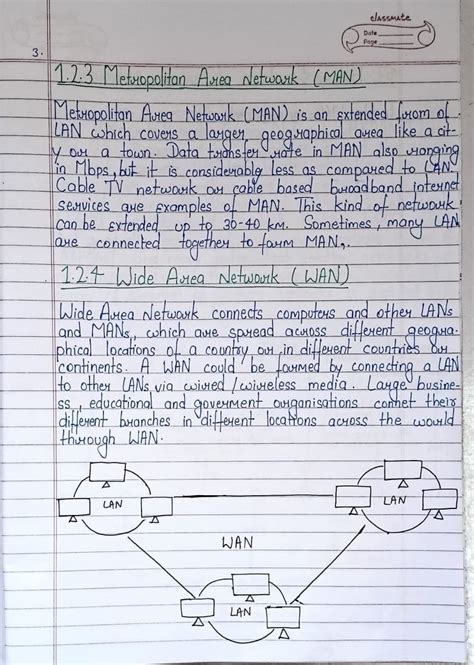 classmate
Date
Page
3.
1.2.3 Metropolitan Area Network (MAN)
Metropolitan Area Network (MAN) is an extended from of
LAN which covers a larger geographical area like a cit-
y or a town. Data transfer rate in MAN also ranging
in Mbps, but it is considerably less as compared to LAN.
Cable TV network or cable based broadband internet
services are examples of MAN. This kind of network
can be extended up to 30-40 km. Sometimes, many LAN
are connected together to form MAN,.
1.2.4 Wide Area Network (WAN)
Wide Area Network connects computers and other LANs
and MANs, which are spread across different geogra-
phical locations of a country or in different countries or
continents. A WAN could be formed by connecting a LAN
to other LANs via wired / wireless media. Large busine-
ss, educational and goverment organisations connet their
different branches in different locations across the world
through WAN.
LAN
LAN
WAN
LAN